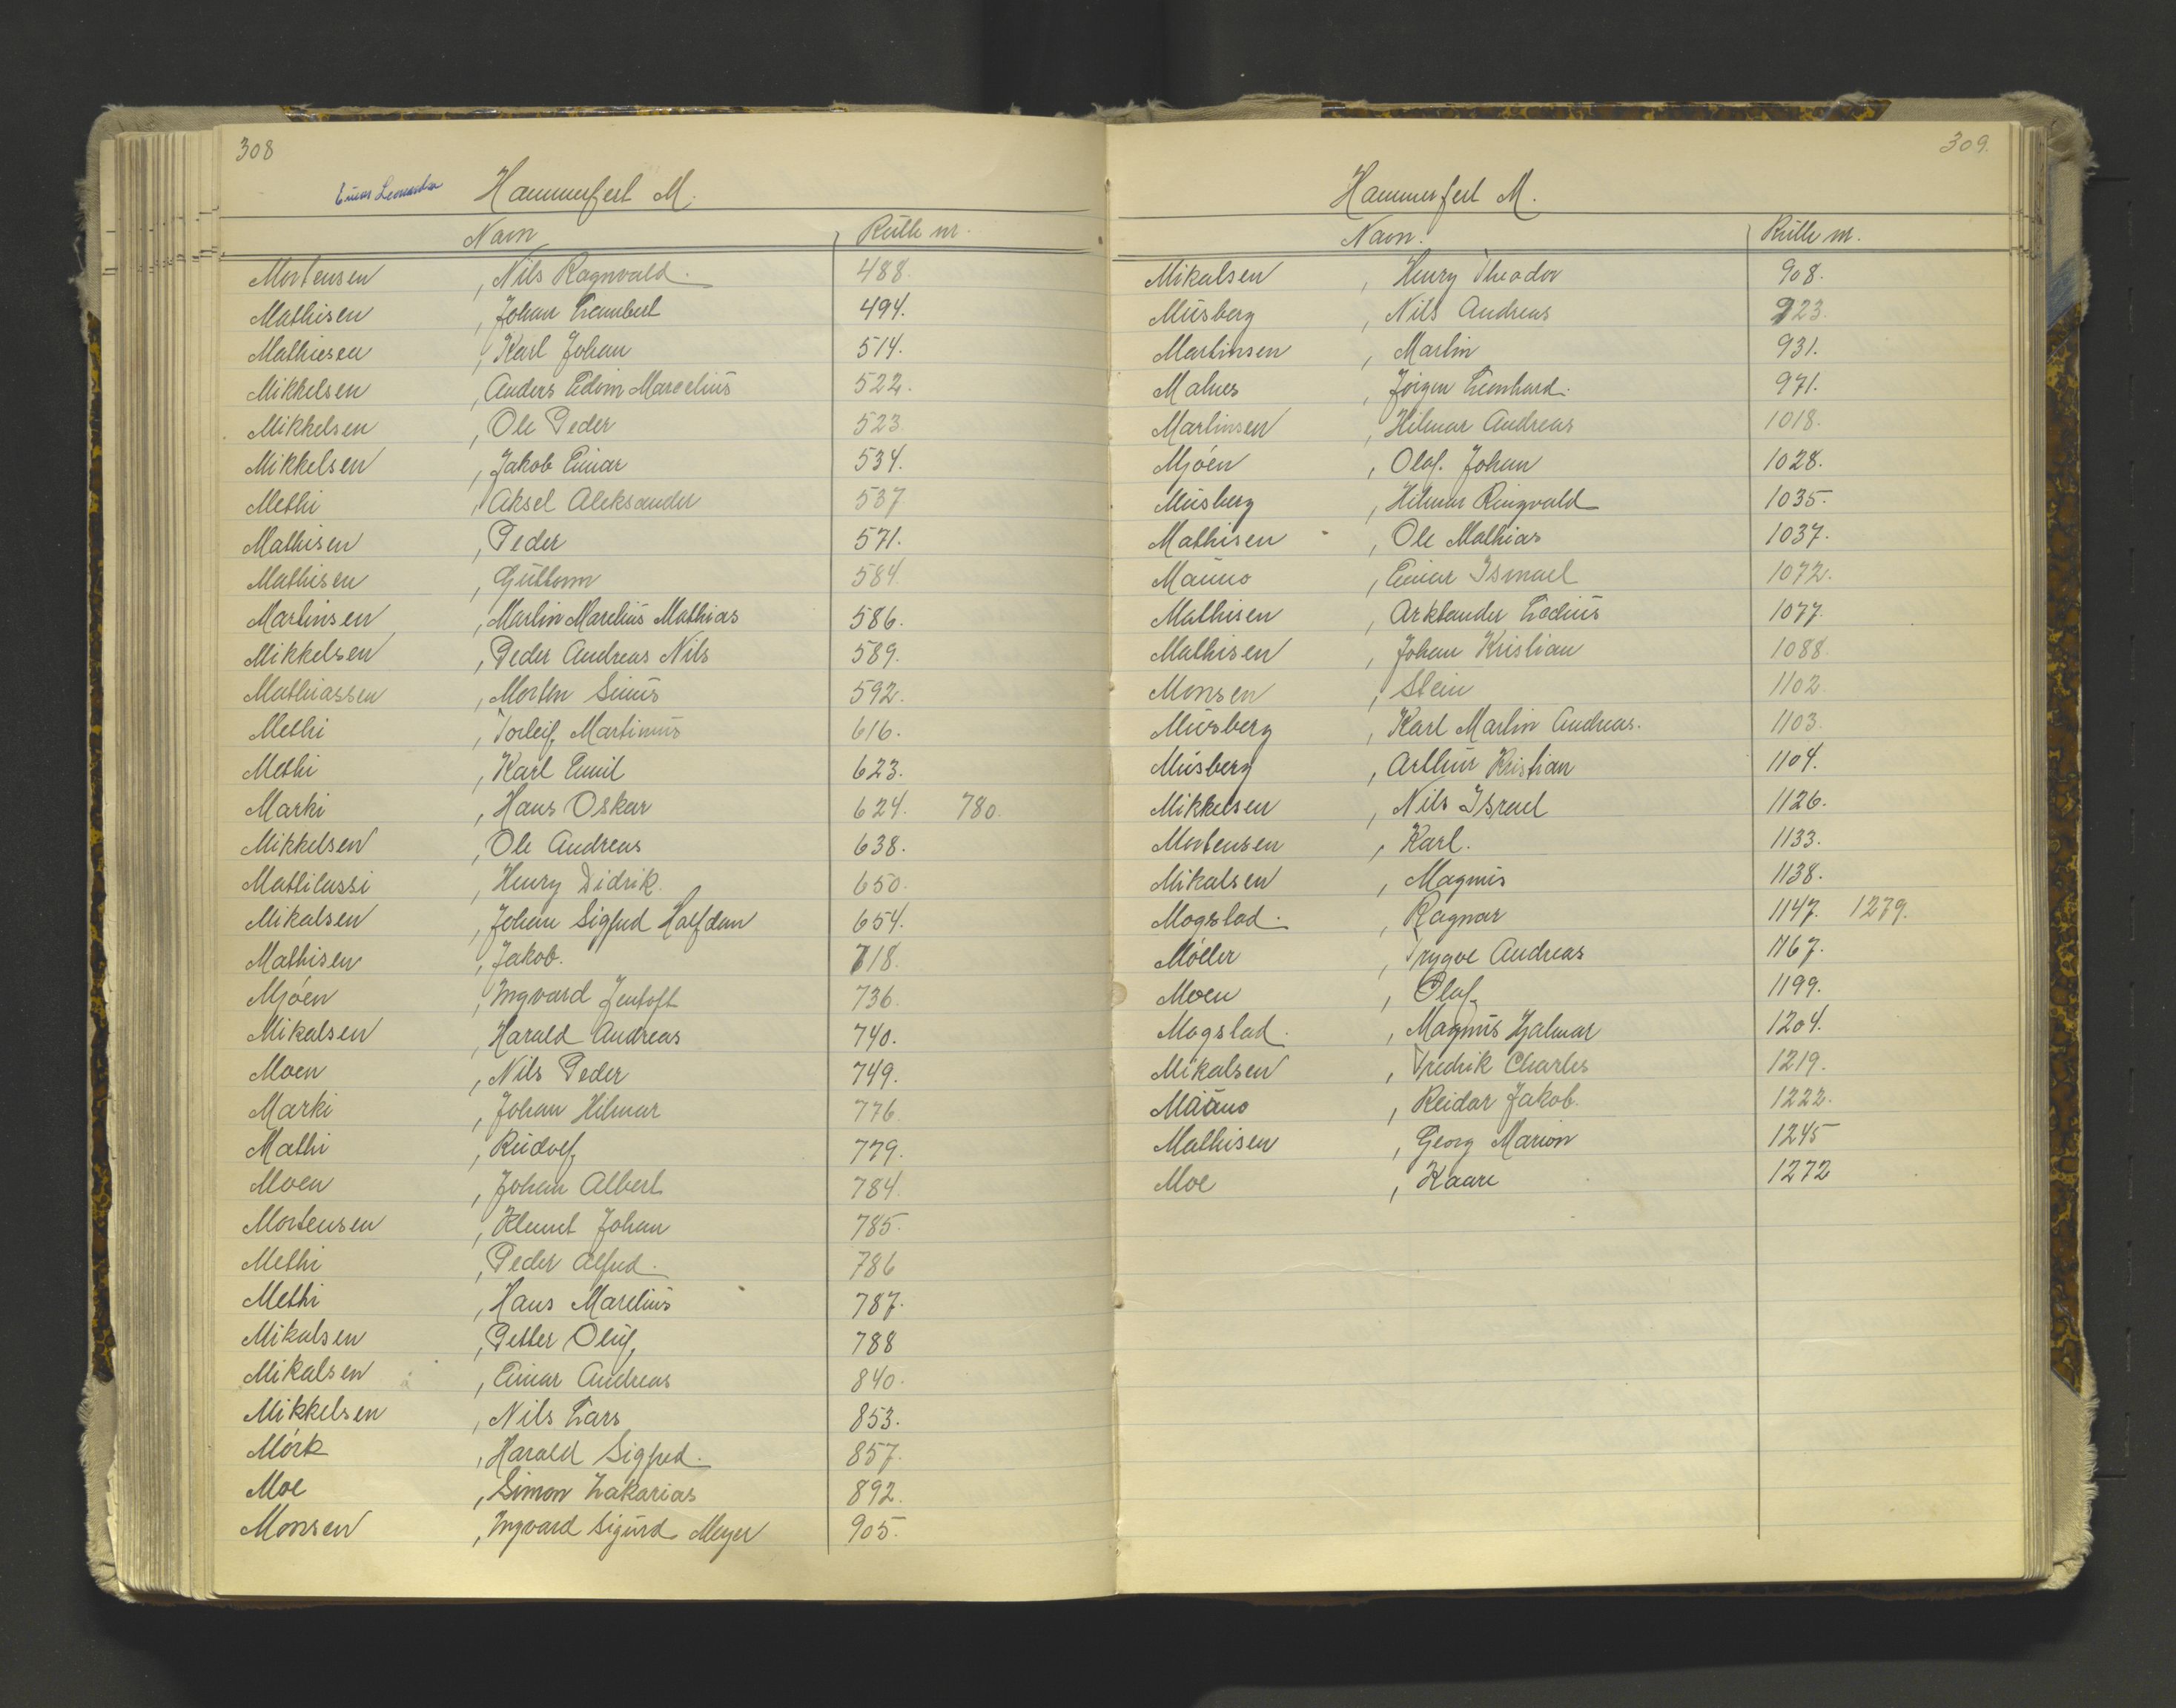 308
Hammerfest M.
Navn Rulle nr.
Mortensen , Nils Ragnvald. 488.
Mathisen , Johan Lambert 494.
Mathiesen , Karl Johan 514.
Mikkelsen , Anders Edvin Marcelius 522.
Mikkelsen , Ole Peder 523
Mikkelsen , Jakob Einar 534.
Methi , Aksel Aleksander 537
Mathisen , Peder 571.
Mathisen , Guttorm 584
Martinsen , Martin Marelius Mathias 586.
Mikkelsen , Peder Andreas Nils 589.
Mathiassen , Morten 592.
Methi , Torleif Martinus 616.
Methi , Karl Emil 623.
Marki , Hans Oskar 624. 780.
Mikkelsen , Ole Andreas 638.
Mattilassi , Henry Didrik. 650.
Mikalsen , Johan Sigfred Halfdan 654.
Mathisen , Jakob. 718.
Mjøen , Ingvard Jentoft 736.
Mikalsen , Harald Andreas 740.
Moen , Nils Peder 749.
Marki , Johan Hilmar 776
Mathi , Rudolf 779.
Moen , Johan Albert 784.
Mortensen , Klemet Johan 785.
Methi , Peder Alfred. 786
Methi , Hans Marelius 787.
Mikalsen , Petter Oluf 788
Mikalsen , Einar Andreas 840.
Mikkelsen , Nils Lars 853.
Mörk , Harald Sigfred. 857.
Moe , Simon Zakarias 892.
Monsen , Ingvard Sigurd Meyer 905.
309.
Hammerfest M.
Navn. Rulle nr.
Mikalsen , Henry Theodor 908.
Musberg , Nils Andreas 923.
Martinsen , Martin 931.
Malnes , Jörgen Leonhard. 971.
Martinsen , Hilmar Andreas 1018.
Mjöen , Olaf Johan 1028.
Musberg , Hilmar Ringvald 1035.
Mathisen , Ole Mathias 1037.
Mauno , Einar Ismael 1072.
Mathisen , Arktander Lodius 1077.
Mathisen , Johan Kristian 1088.
Monsen , Stein 1102.
Musberg , Karl Martin Andreas. 1103.
Musberg , Arthur Kristian 1104.
Mikkelsen , Nils Israel 1126.
Mortensen , Karl. 1133.
Mikalsen , Magnus 1138.
Mogstad. , Ragnar 1147. 1279.
Möller , Trygve Andreas 1167.
Moen , Olaf. 1199.
Mogstad. , Magnus Hjalmar 1204.
Mikalsen , Fredrik Charles 1219.
Mauno , Reidar Jakob. 1222.
Mathisen , Georg Marion 1245
Moe , Kaare 1272